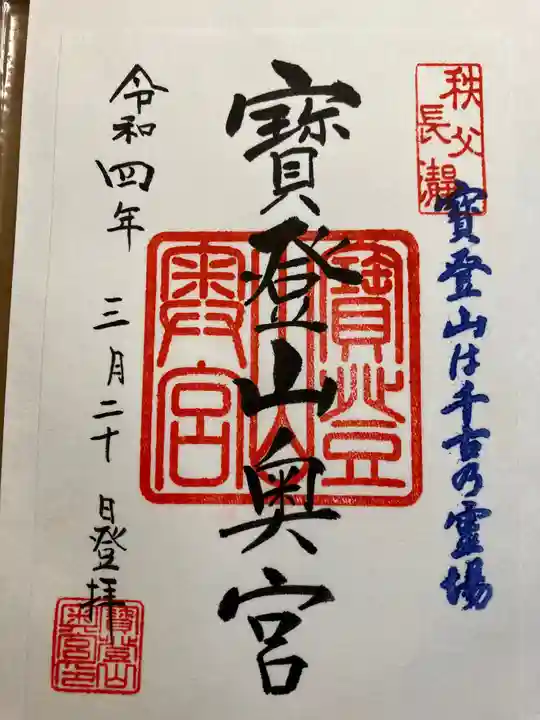 秩父
長瀞
寶登山は千古乃霊場
寶登山奥宮
寶登山
奥宮
令和四年 三月二十日登拝
寶登山
奥宮印